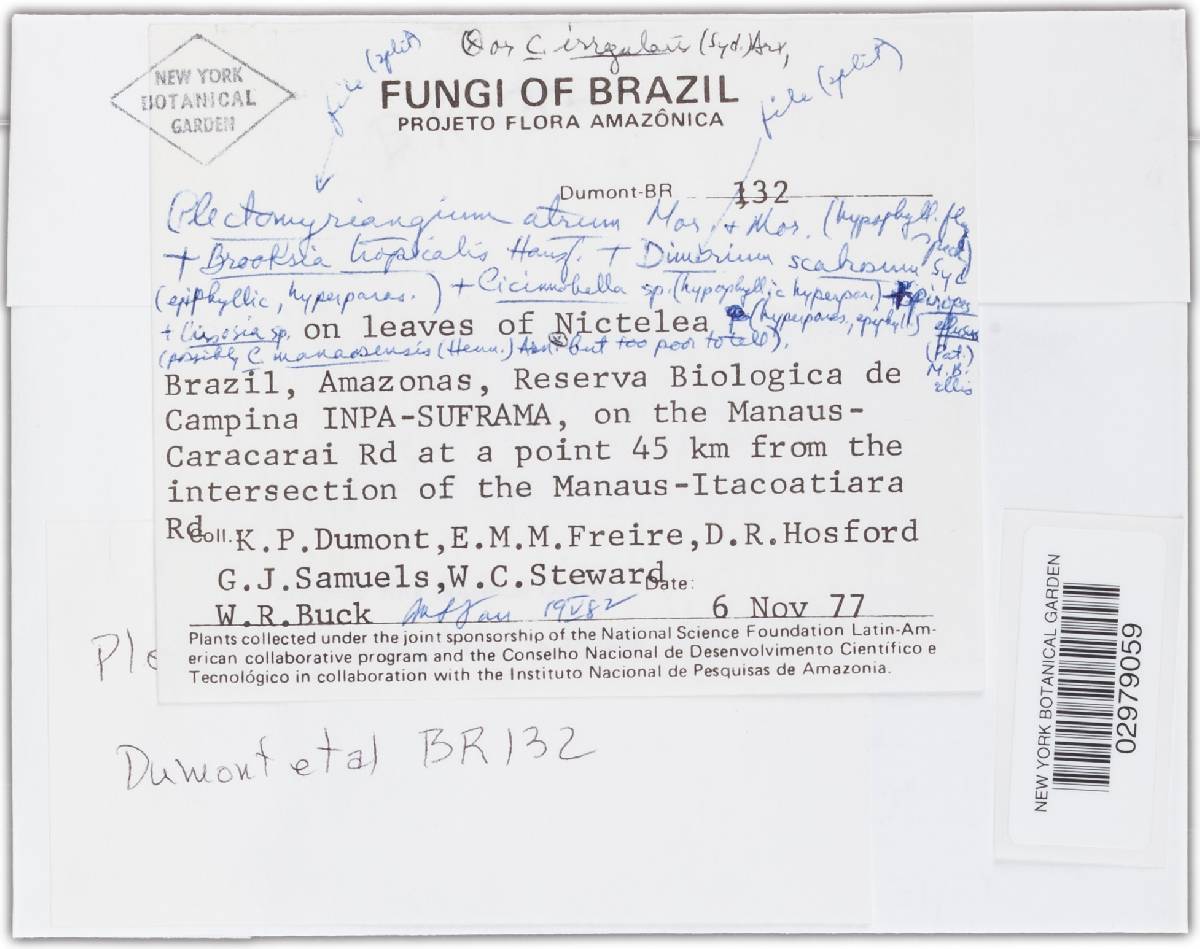 ⊗ or C. irregularis (Syd.) Arx,
NEW YORK
BOTANICAL
GARDEN
file (split)
FUNGI OF BRAZIL
PROJETO FLORA AMAZÔNICA
file (split)
Dumont-BR 132
Plectomyriangium atrum Mor. + Mor. (hypophyll. fly speck)
+ Brooksia tropicalis Hansf. + Dimerium scabrosum Syd
(epiphyllic, hyperparas.) + Cicinnobella sp. (hypophyllic hyperpar.) + Spiropes
+ Cirsosia sp. on leaves of Nictelea (hyperparas, epiphyll) effusus
(possibly C manaosensis (Henn.) Arx ⊗ but too poor to tell). (Pat.)
M.B.
Ellis
Brazil, Amazonas, Reserva Biologica de
Campina INPA-SUFRAMA, on the Manaus-
Caracarai Rd at a point 45 km from the
intersection of the Manaus-Itacoatiara
Rd
Coll. K.P.Dumont,E.M.M.Freire,D.R.Hosford
G.J.Samuels,W.C.Steward Date:
W.R.Buck 19 V 82 6 Nov 77
Plants collected under the joint sponsorship of the National Science Foundation Latin-Am-
erican collaborative program and the Conselho Nacional de Desenvolvimento Científico e
Tecnológico in collaboration with the Instituto Nacional de Pesquisas de Amazonia.
Ple
Dumont et al BR 132
NEW YORK BOTANICAL GARDEN
02979059